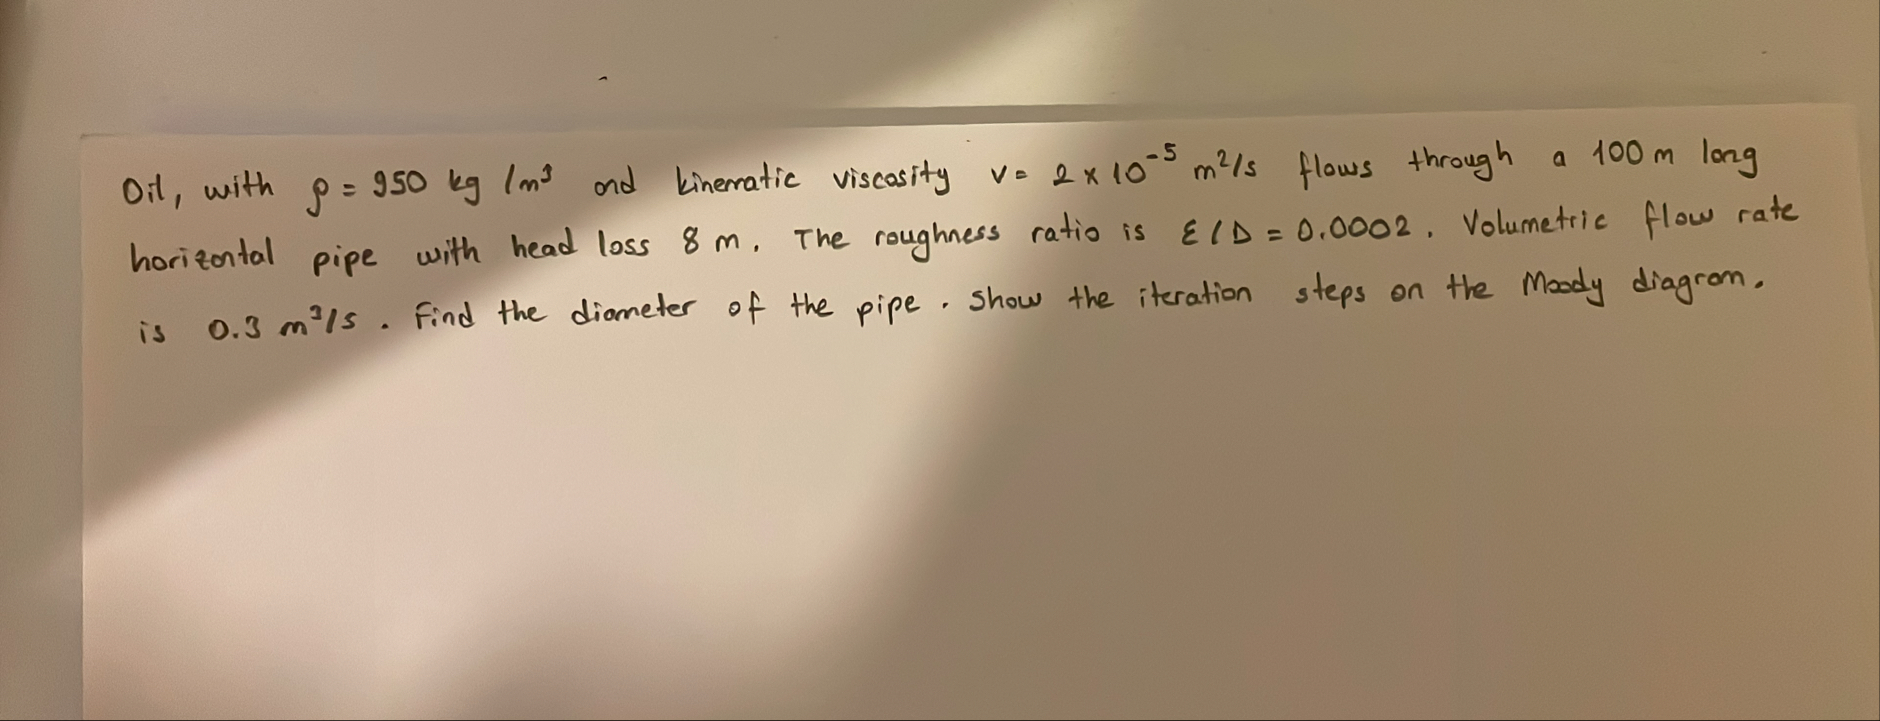 Oil, with ρ = 950 kg/m³ and kinematic viscosity ν = 2 x 10⁻⁵ m²/s flows through a 100 m long
horizontal pipe with head loss 8 m. The roughness ratio is ε/D = 0.0002. Volumetric flow rate
is 0.3 m³/s. Find the diameter of the pipe. Show the iteration steps on the Moody diagram.